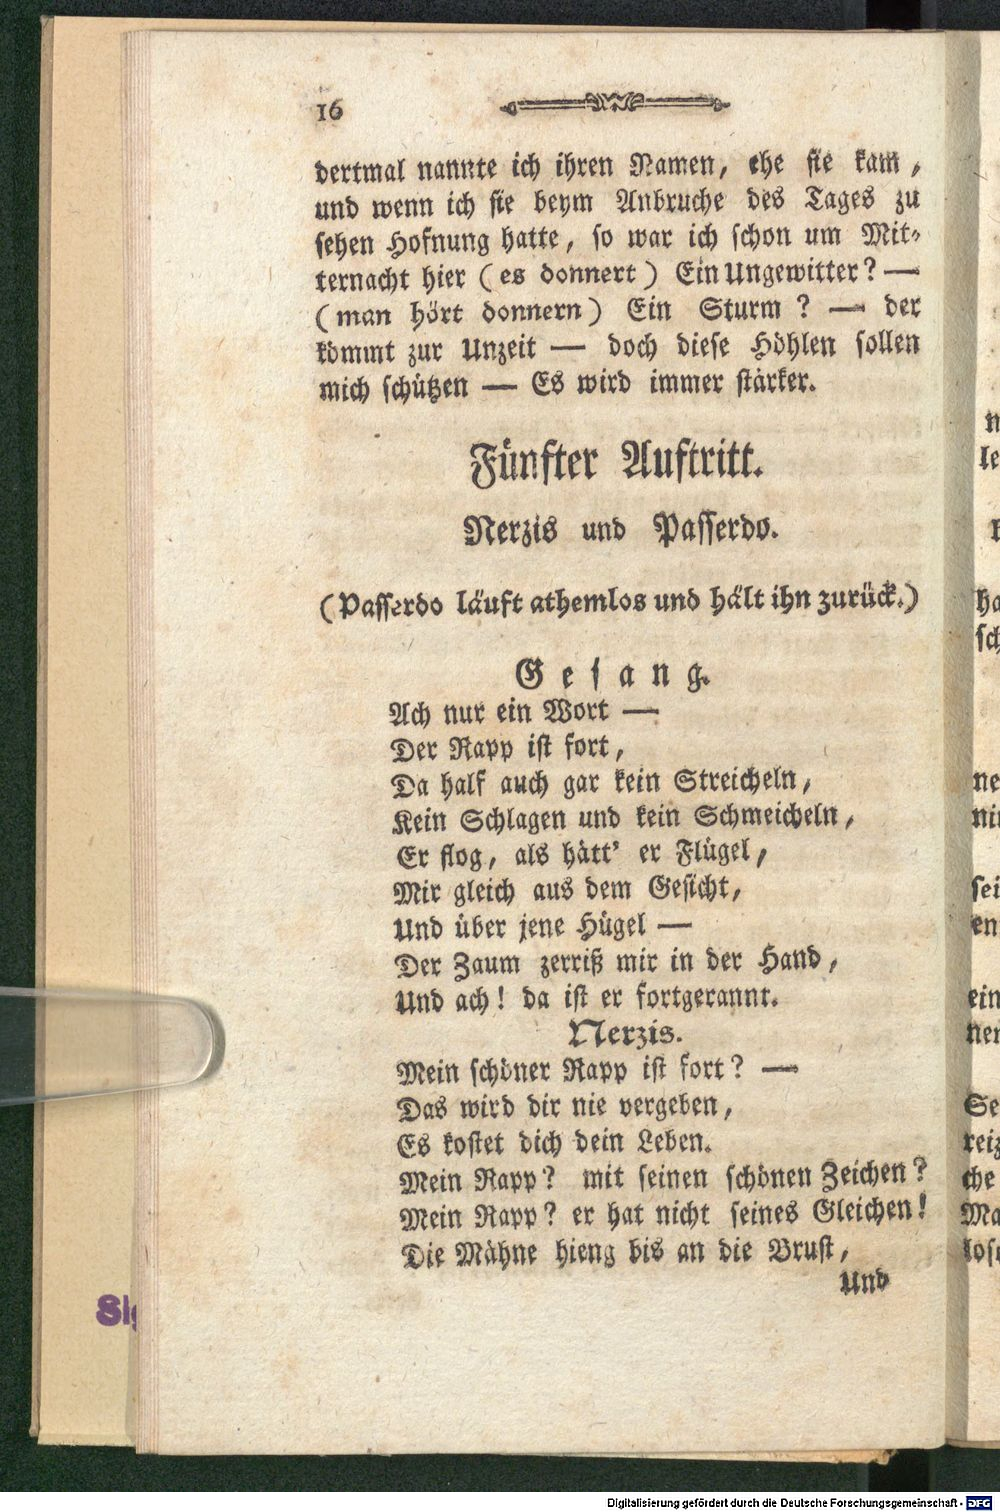 16
dertmal nannte ich ihren Namen, ehe sie kam,
und wenn ich sie beym Anbruche des Tages zu
sehen Hofnung hatte, so war ich schon um Mit-
ternacht hier (es donnert) Ein Ungewitter? —
(man hört donnern) Ein Sturm? — der
kömmt zur Unzeit — doch diese Höhlen sollen
mich schützen — Es wird immer stärker.
Fünfter Auftritt.
Nerzis und Passerdo.
(Passerdo läuft athemlos und hält ihn zurück.)
Gesang.
Ach nur ein Wort —
Der Rapp ist fort,
Da half auch gar kein Streicheln,
Kein Schlagen und kein Schmeicheln,
Er flog, als hätt' er Flügel,
Mir gleich aus dem Gesicht,
Und über jene Hügel —
Der Zaum zerriß mir in der Hand,
Und ach! da ist er fortgerannt.
Nerzis.
Mein schöner Rapp ist fort? —
Das wird dir nie vergeben,
Es kostet dich dein Leben.
Mein Rapp? mit seinen schönen Zeichen?
Mein Rapp? er hat nicht seines Gleichen!
Die Mähne hieng bis an die Brust,
Und
Digitalisierung gefördert durch die Deutsche Forschungsgemeinschaft - DFG